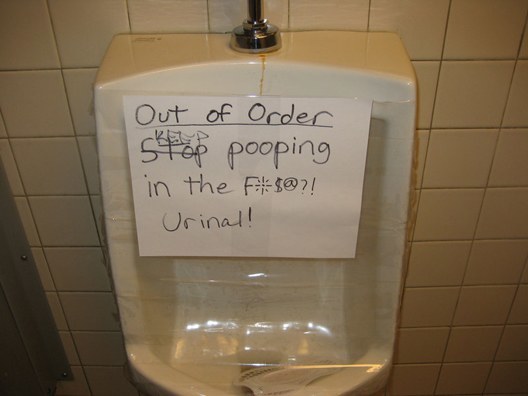 Out of Order
KEEP
Stop pooping
in the F*$@?!
Urinal!